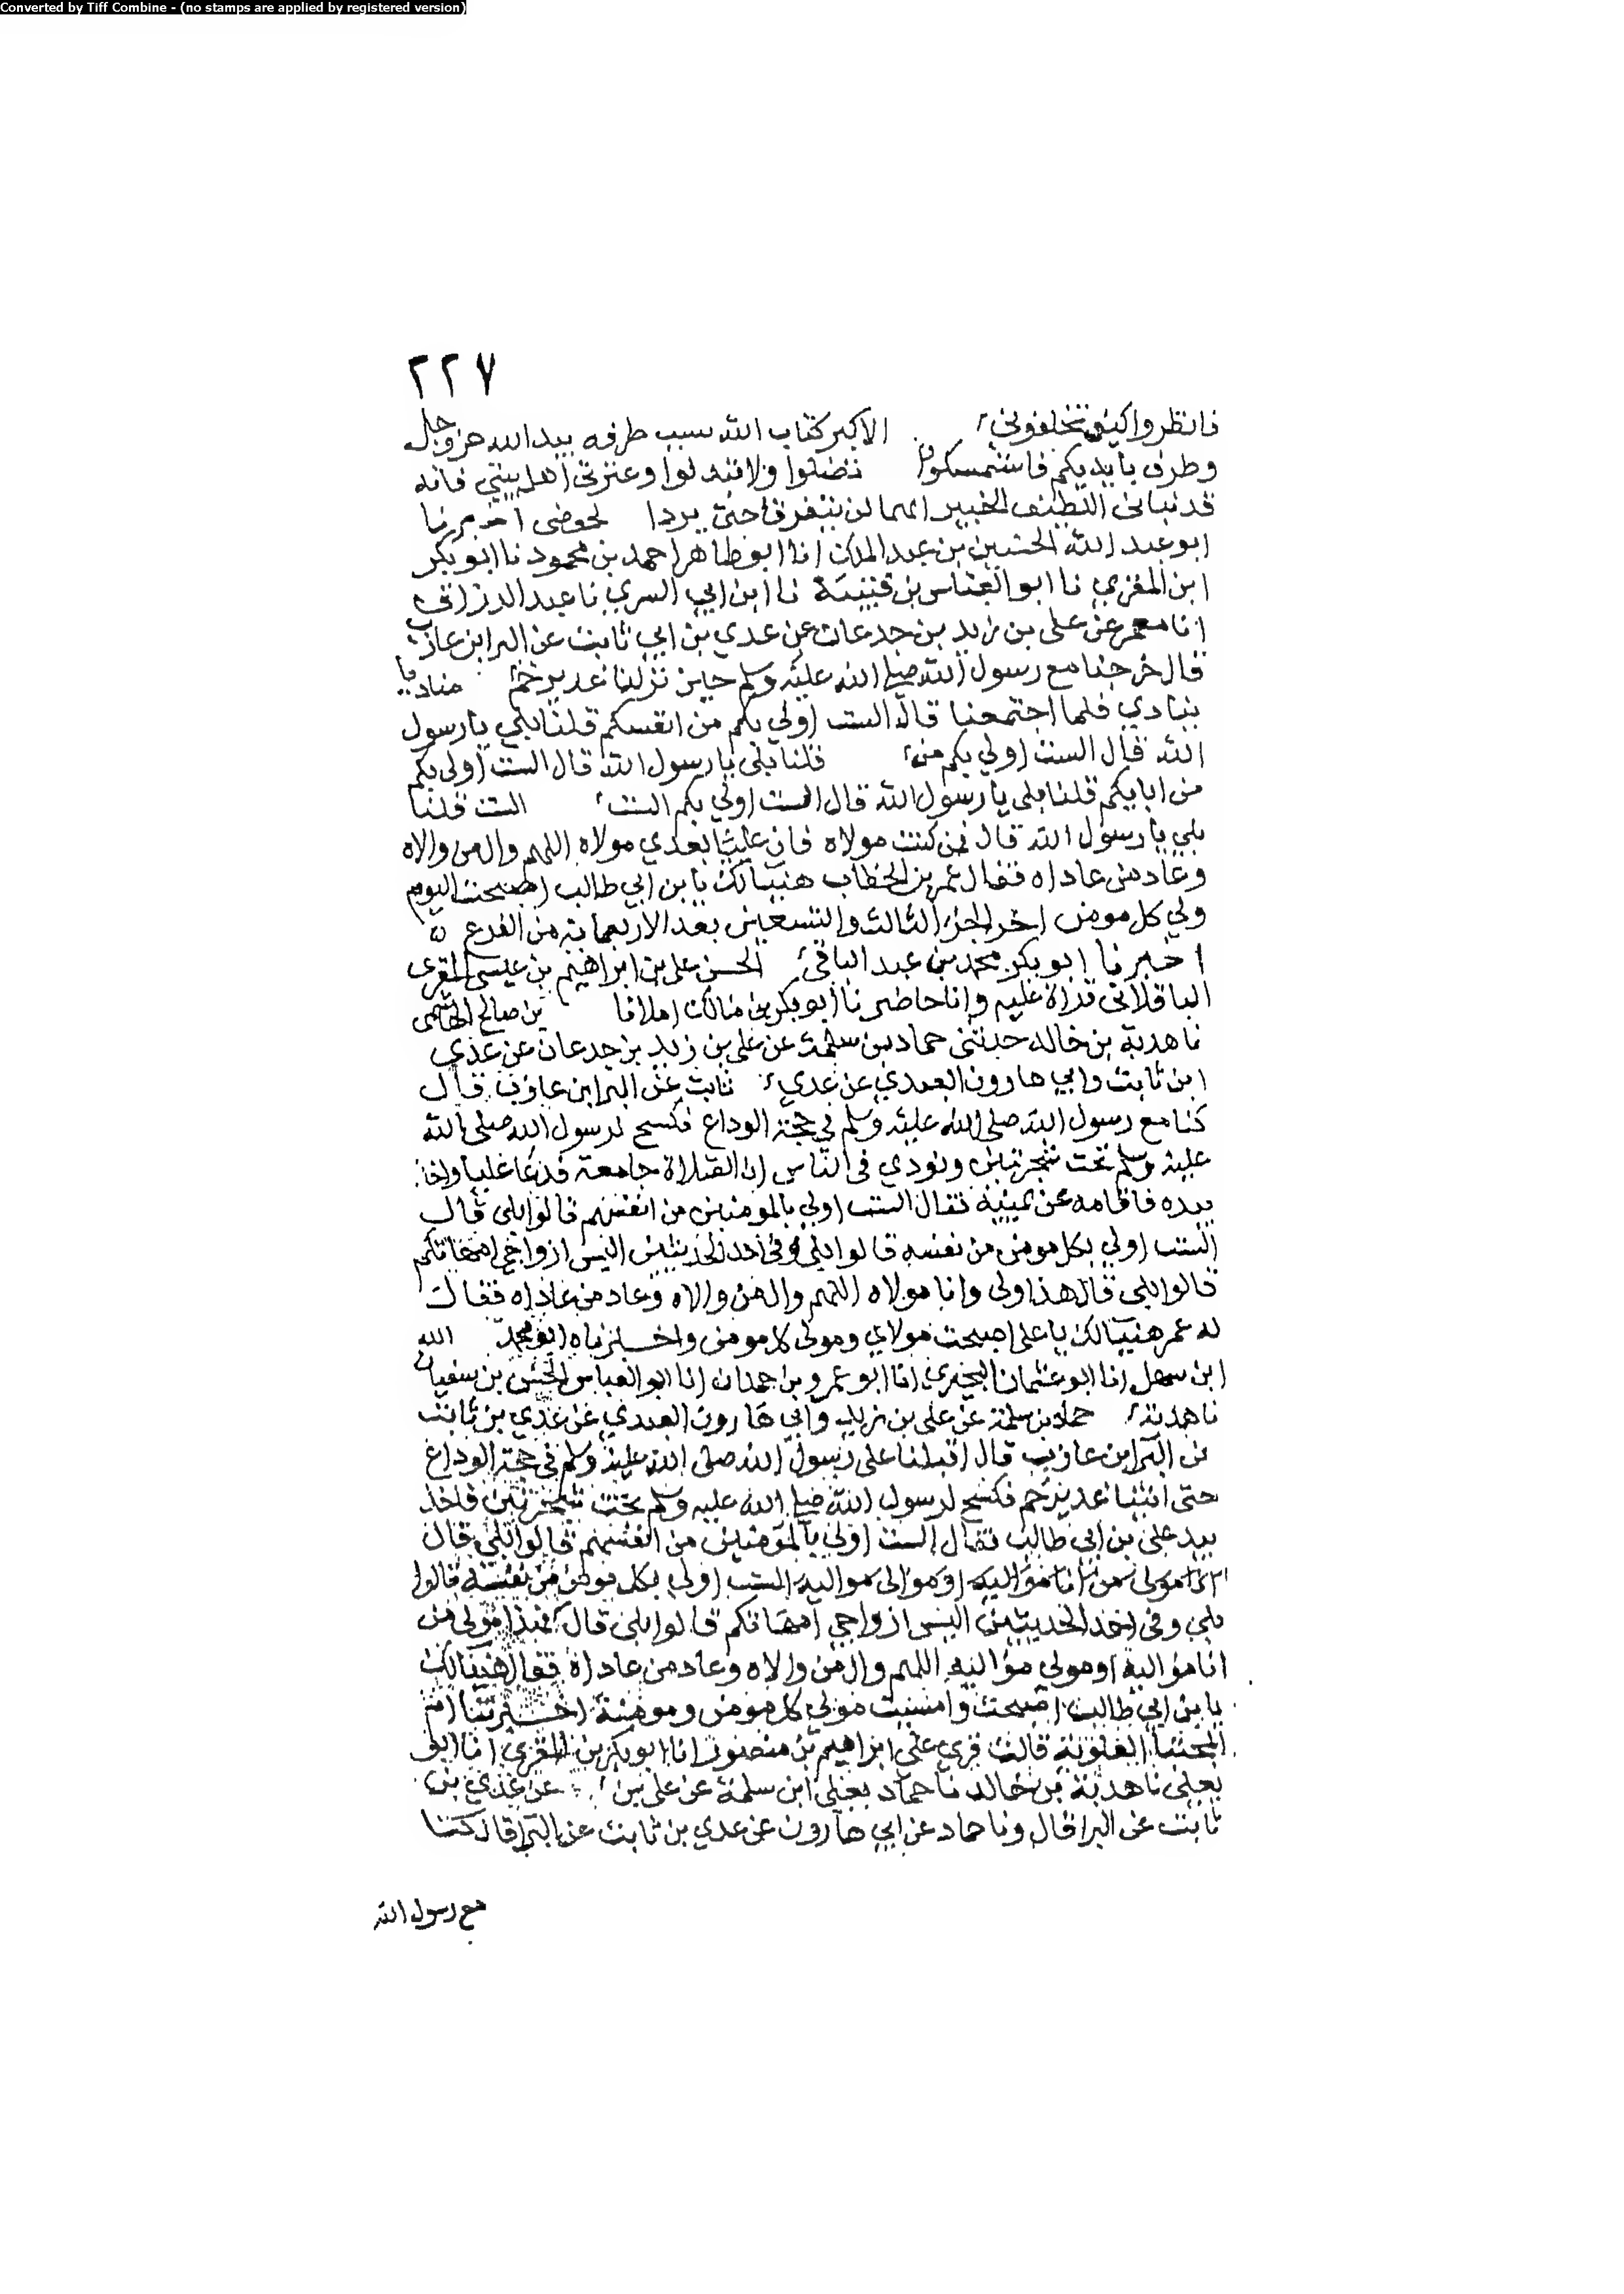 Converted by Tiff Combine - (no stamps are applied by registered version)
٢٢٧
فانظروا كيف تخلفوني الاكبر كتاب الله سبب طرفه بيد الله عز وجل
وطرف بايديكم فاستمسكوا تضلوا ولا تبدلوا وعترتي اهل بيتي فانه
قد نباني اللطيف الخبير انهما لن يتفرقا حتى يردا لحوضى اخبرنا
ابو عبد الله الحسين بن عبد الملك انا ابو طاهر احمد بن محمود نا ابو بكر
ابن المقري نا ابو العباس بن قتيبة نا ابن ابي السري نا عبد الرزاق
انا معمر عن على بن زيد بن جدعان عن عدي بن ابي ثابت عن البرا بن عازب
قال خرجنا مع رسول الله صلى الله عليه وسلم حين نزلنا غدير خم مناديا
ينادي فلما اجتمعنا قال الست اولي بكم من انفسكم قلنا بلي يا رسول
الله قال الست اولي بكم من قلنا بلى يا رسول الله قال الست اولى بكم
من ابايكم قلنا بلى يا رسول الله قال الست اولي بكم الست الست قلنا
بلي يا رسول الله قال فمن كنت مولاه فان عليا بعدي مولاه اللهم وال من والاه
وعاد من عاداه فقال عمر بن الخطاب هنيا لك يا بن ابي طالب اصبحت اليوم
ولي كل مومن اخر الجزء الثالث والتسعين بعد الاربعماية من الفرع
اخبرنا ابو بكر محمد بن عبد الباقي الحسن على بن ابراهيم بن عيسى المقرى
الباقلاني قراة عليه وانا حاضر نا ابو بكر بن مالك املا نا بن صالح الهاشمى
نا هدبة بن خالد حدثني حماد بن سلمة عن على بن زيد بن جدعان عن عدي
ابن ثابت وابي هارون العبدي عن عدي ثابت عن البرا بن عازب قال
كنا مع رسول الله صلى الله عليه وسلم في حجة الوداع فكسح لرسول الله صلى الله
عليه وسلم تحت شجرتين ونودي فى الناس ان الصلاة جامعة فدعا عليا واخذ
بيده فاقامه عن يمينه فقال الست اولي بالمومنين من انفسهم قالوا بلى قال
الست اولي بكل مومن من نفسه قالوا بلى وفى احد الحديثين اليس ازواجي امهاتكم
قالوا بلى قال هذا ولى وانا مولاه اللهم وال من والاه وعاد من عاداه فقال
له عمر هنيا لك يا على اصبحت مولاي ومولى كل مومن واخبرناه ابو محمد الله
ابن سهل انا ابو عثمان البحيري انا ابو عمرو بن حمدان انا ابو العباس الحسن بن سفيان
نا هدبة حماد بن سلمة عن على بن زيد وابي هارون العبدي عن عدي بن ثابت
عن البرا بن عازب قال اقبلنا على رسول الله صلى الله عليه وسلم في حجة الوداع
حتى اتينا غدير خم فكسح لرسول الله صلى الله عليه وسلم تحت شجرتين فاخذ
بيد على بن ابى طالب فقال الست اولى بالمومنين من انفسهم قالوا بلى قال
مولى من انا مواليه او موالى مواليه الست اولى بكل مومن من نفسه قالوا
بلي وفى احد الحديثين اليس ازواجي امهاتكم قالوا بلى قال فهذا مولى من
انا مواليه او مولي مواليه اللهم وال من والاه وعاد من عاداه فقال هنيا لك
يا بن ابي طالب اصبحت وامسيت مولي كل مومن ومومنة اخبرتنا ام
المجتبا العلوية قالت قرى على ابراهيم بن منصور انا ابو بكر بن المقري انا ابو
يعلى نا هدبة بن خالد نا حماد يعنى ابن سلمة عن على بن عن عدي بن
ثابت عن البرا قال ونا حماد عن ابي هارون عن عدي بن ثابت عن البرا قال كنا
مع رسول الله